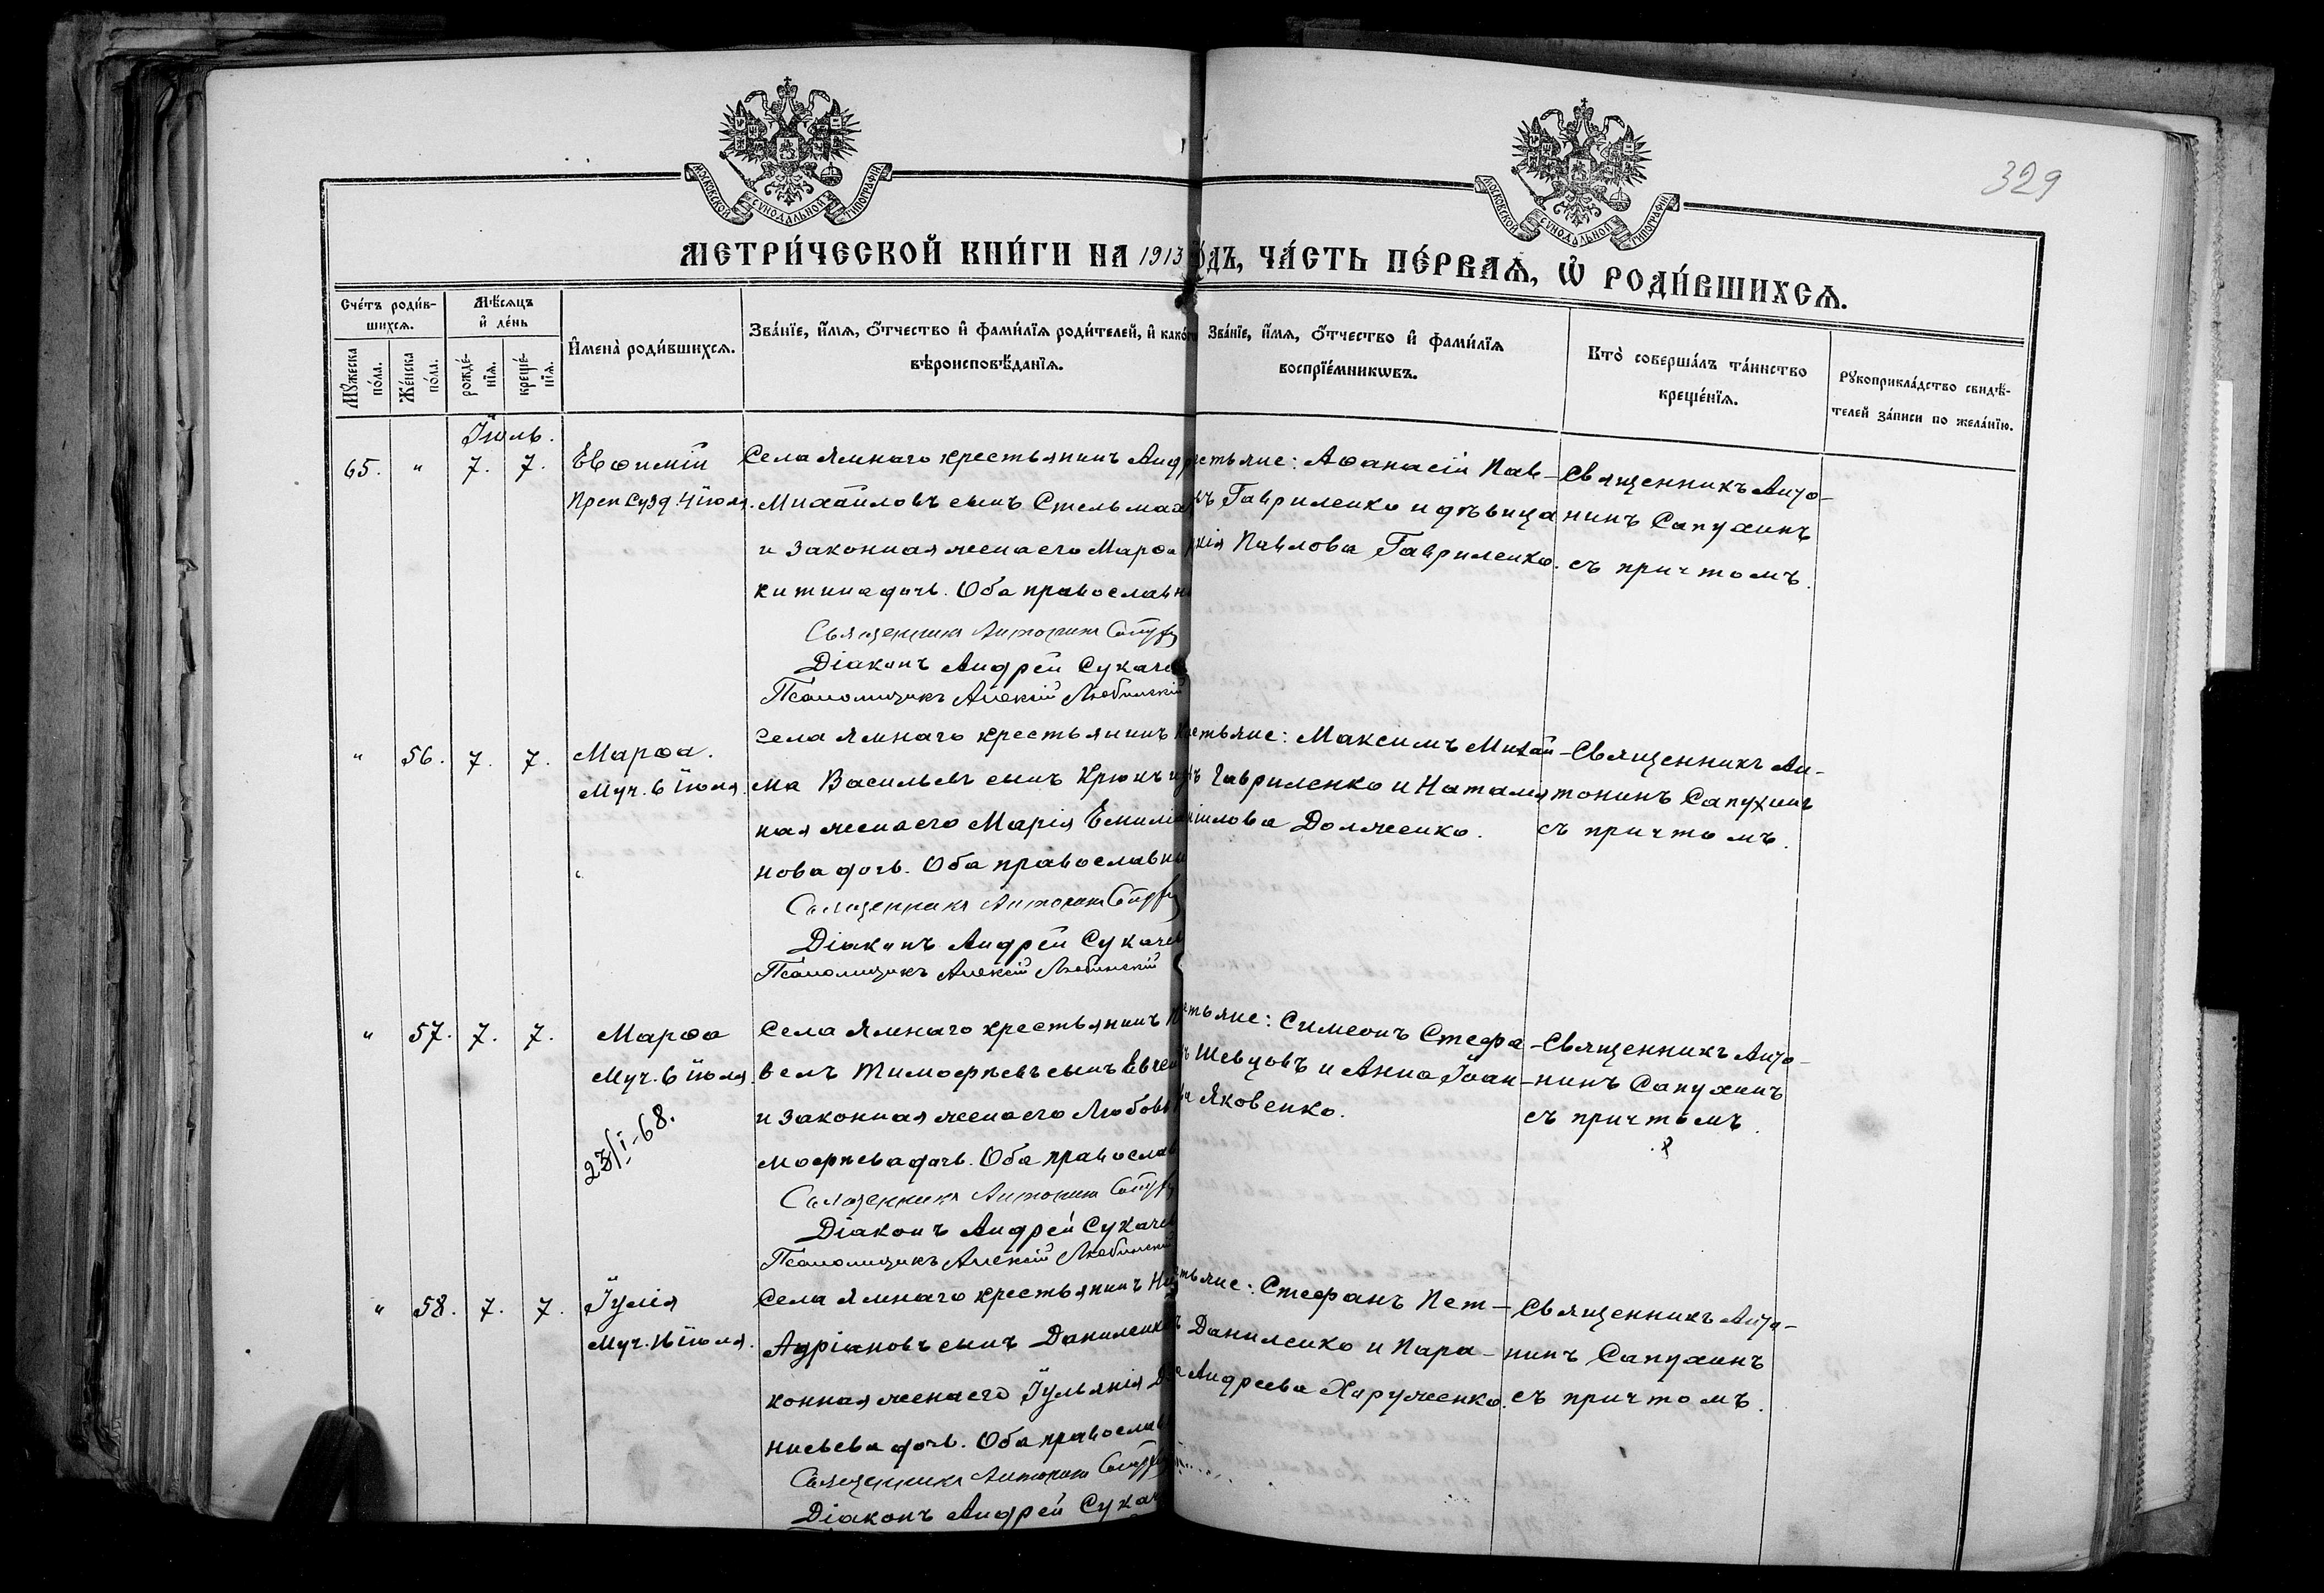 329
МОСКОВСКОЙ СѴНОДАЛЬНОЙ ТИПОГРАФІИ
МОСКОВСКОЙ СѴНОДАЛЬНОЙ ТИПОГРАФІИ
МЕТРИ́ЧЕСКОЙ КНИ́ГИ НА 1913 ГОДЪ, ЧА́СТЬ ПЕ́РВАѦ, Ѡ РОДИ́ВШИХСѦ.
Сче́тъ роди́в-
шихсѧ.
Мꙋ́жеска по́ла.
Же́нска по́ла.
Мѣ́сѧцъ
и҆ де́нь
рожде́-
нїѧ.
креще́-
нїѧ.
И҆мена̀ роди́вшихсѧ.
Зва́нїе, и҆́мѧ, ѻ҆́тчество и҆ фами́лїѧ роди́телей, и҆ како́гѡ
вѣроисповѣ́данїѧ.
Зва́нїе, и҆́мѧ, ѻ҆́тчество и҆ фами́лїѧ
воспрїе́мникѡвъ.
Кто̀ соверша́лъ та́инство
креще́нїѧ.
Рꙋкоприкла́дство свидѣ́-
телей за́писи по жела́нїю.
Іюль.
65. " 7. 7.
Евѳимій
Преп. Сузд. 4 іюля.
Села Ямнаго крестьянинъ Анд
Михаиловъ сынъ Стельмах
и законная жена его Марѳа
китина дочь. Оба православн
Священникъ Антонинъ Сапух
Діаконъ Андрей Сукачев
Псаломщикъ Алексій Любинскій
рестьяне: Аѳанасій Пав-
ъ Гавриленко и дѣвица
кія Павлова Гавриленко.
Священникъ Анто-
нинъ Сапухинъ
съ причтомъ.
" 56. 7. 7.
Марѳа.
Муч. 6 іюля.
Села Ямнаго крестьянинъ
ма Васильевъ сынъ Крюкъ и
ная жена его Марія Емилиа
нова дочь. Оба православны
Священникъ Антонинъ Сапух
Діаконъ Андрей Сукачев
Псаломщикъ Алексій Любинскій
стьяне: Максимъ Михаи-
ъ Гавриленко и Наталія
илова Долженко.
Священникъ Ан-
тонинъ Сапухинъ
съ причтомъ.
" 57. 7. 7.
Марѳа
Муч. 6 іюля.
23/I-68.
Села Ямнаго крестьянинъ П
велъ Тимоѳѣевъ сынъ Евче
и законная жена его Любовь
моѳѣева дочь. Оба православ
Священникъ Антонинъ Сапух
Діаконъ Андрей Сукачев
Псаломщикъ Алексій Любинскій
стьяне: Симеонъ Стефа-
ъ Шевцовъ и Анна Іоан-
а Яковенко.
Священникъ Анто-
нинъ Сапухинъ
съ причтомъ.
" 58. 7. 7.
Іулія
Муч. 16 іюля.
Села Ямнаго крестьянинъ
Адріановъ сынъ Даниленко
конная жена его Іульянія
ниева дочь. Оба православ
Священникъ Антонинъ Сапух
Діаконъ Андрей Сукач
тьяне: Стефанъ Пет-
ъ Даниленко и Пара-
Андреева Харуженко.
Священникъ Анто-
нинъ Сапухинъ
съ причтомъ.